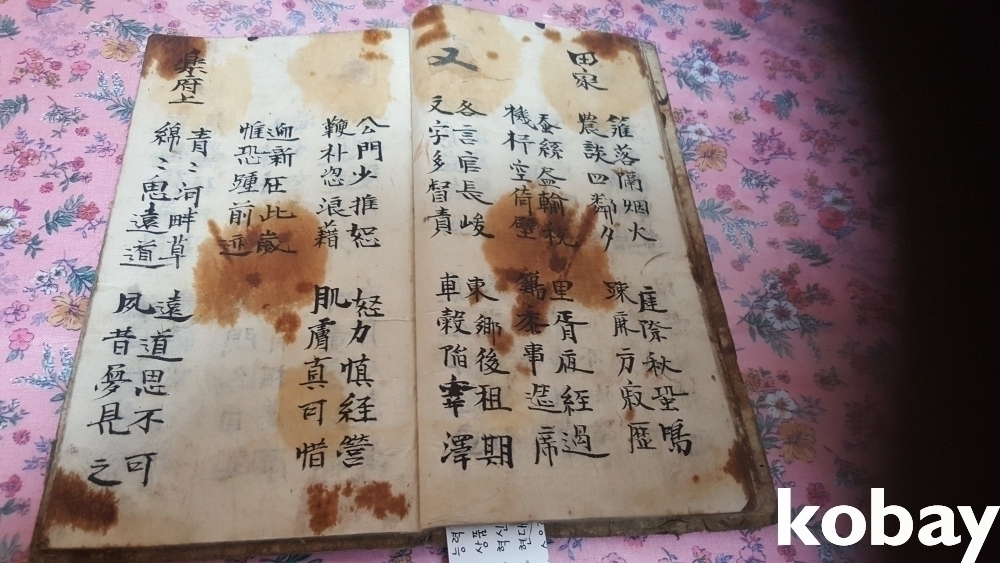 田家
籬落隔烟火 庭際秋蛩鳴
農談四鄰夕 疎麻方寂歷
蚕絲盡輸稅 里胥夜経過
機杼空倚壁 鷄黍事筵席
又
各言官長峻 東鄉後租期
文字多督責 車轂陷 澤
公門少推恕 力慎経營
鞭朴恣浪藉 肌膚真可惜
迎新在此歲
惟恐踵前迹
楽府上
青〻河畔草 遠道思不可
綿〻思遠道 夙昔夢見之
kobay